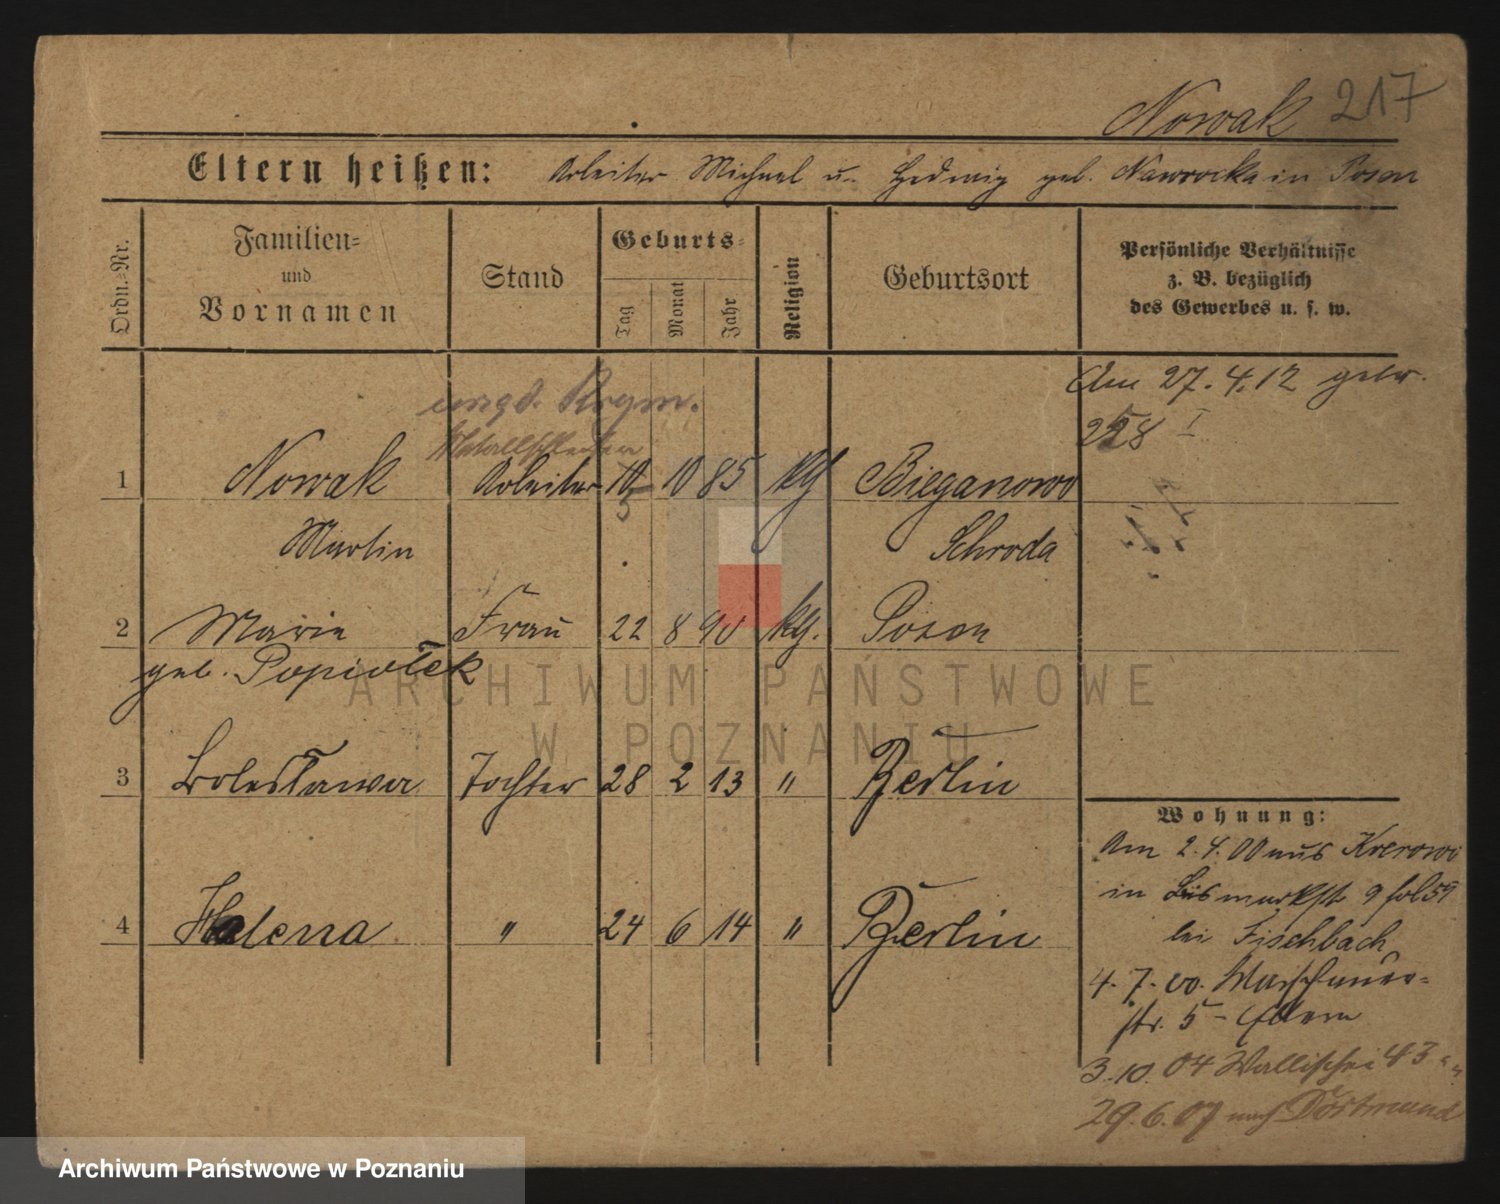 Nowak 217
Eltern heißen: Arbeiter Michael u. Hedwig geb. Nawrocka in Posen
Ordn.=Nr.
Familien=
und
Vornamen
Stand
Geburts=
Tag
Monat
Jahr
Religion
Geburtsort
Persönliche Verhältnisse
z. B. bezüglich
des Gewerbes u. s. w.
Am 27.4.12
Metallschleifer
1 Nowak Arbeiter 10 10 85 kth Bieganowo
5
Martin Schroda
2 Marie Frau 22 8 90 kth. Posen
geb. Popiołek
3 Bolesława Tochter 28 2 13 " Berlin
4 Helena " 24 6 14 " Berlin
Wohnung:
Am 2.4.00 aus Krerowo
in Bismarkstr 9 fol 59
bei Fischbach
4.7.00. Waschmauer=
str. 5 - Eltern
3.10.04 Wallischei 43 "
29.6.07 nach Dortmund
ARCHIWUM PAŃSTWOWE
W POZNANIU
Archiwum Państwowe w Poznaniu